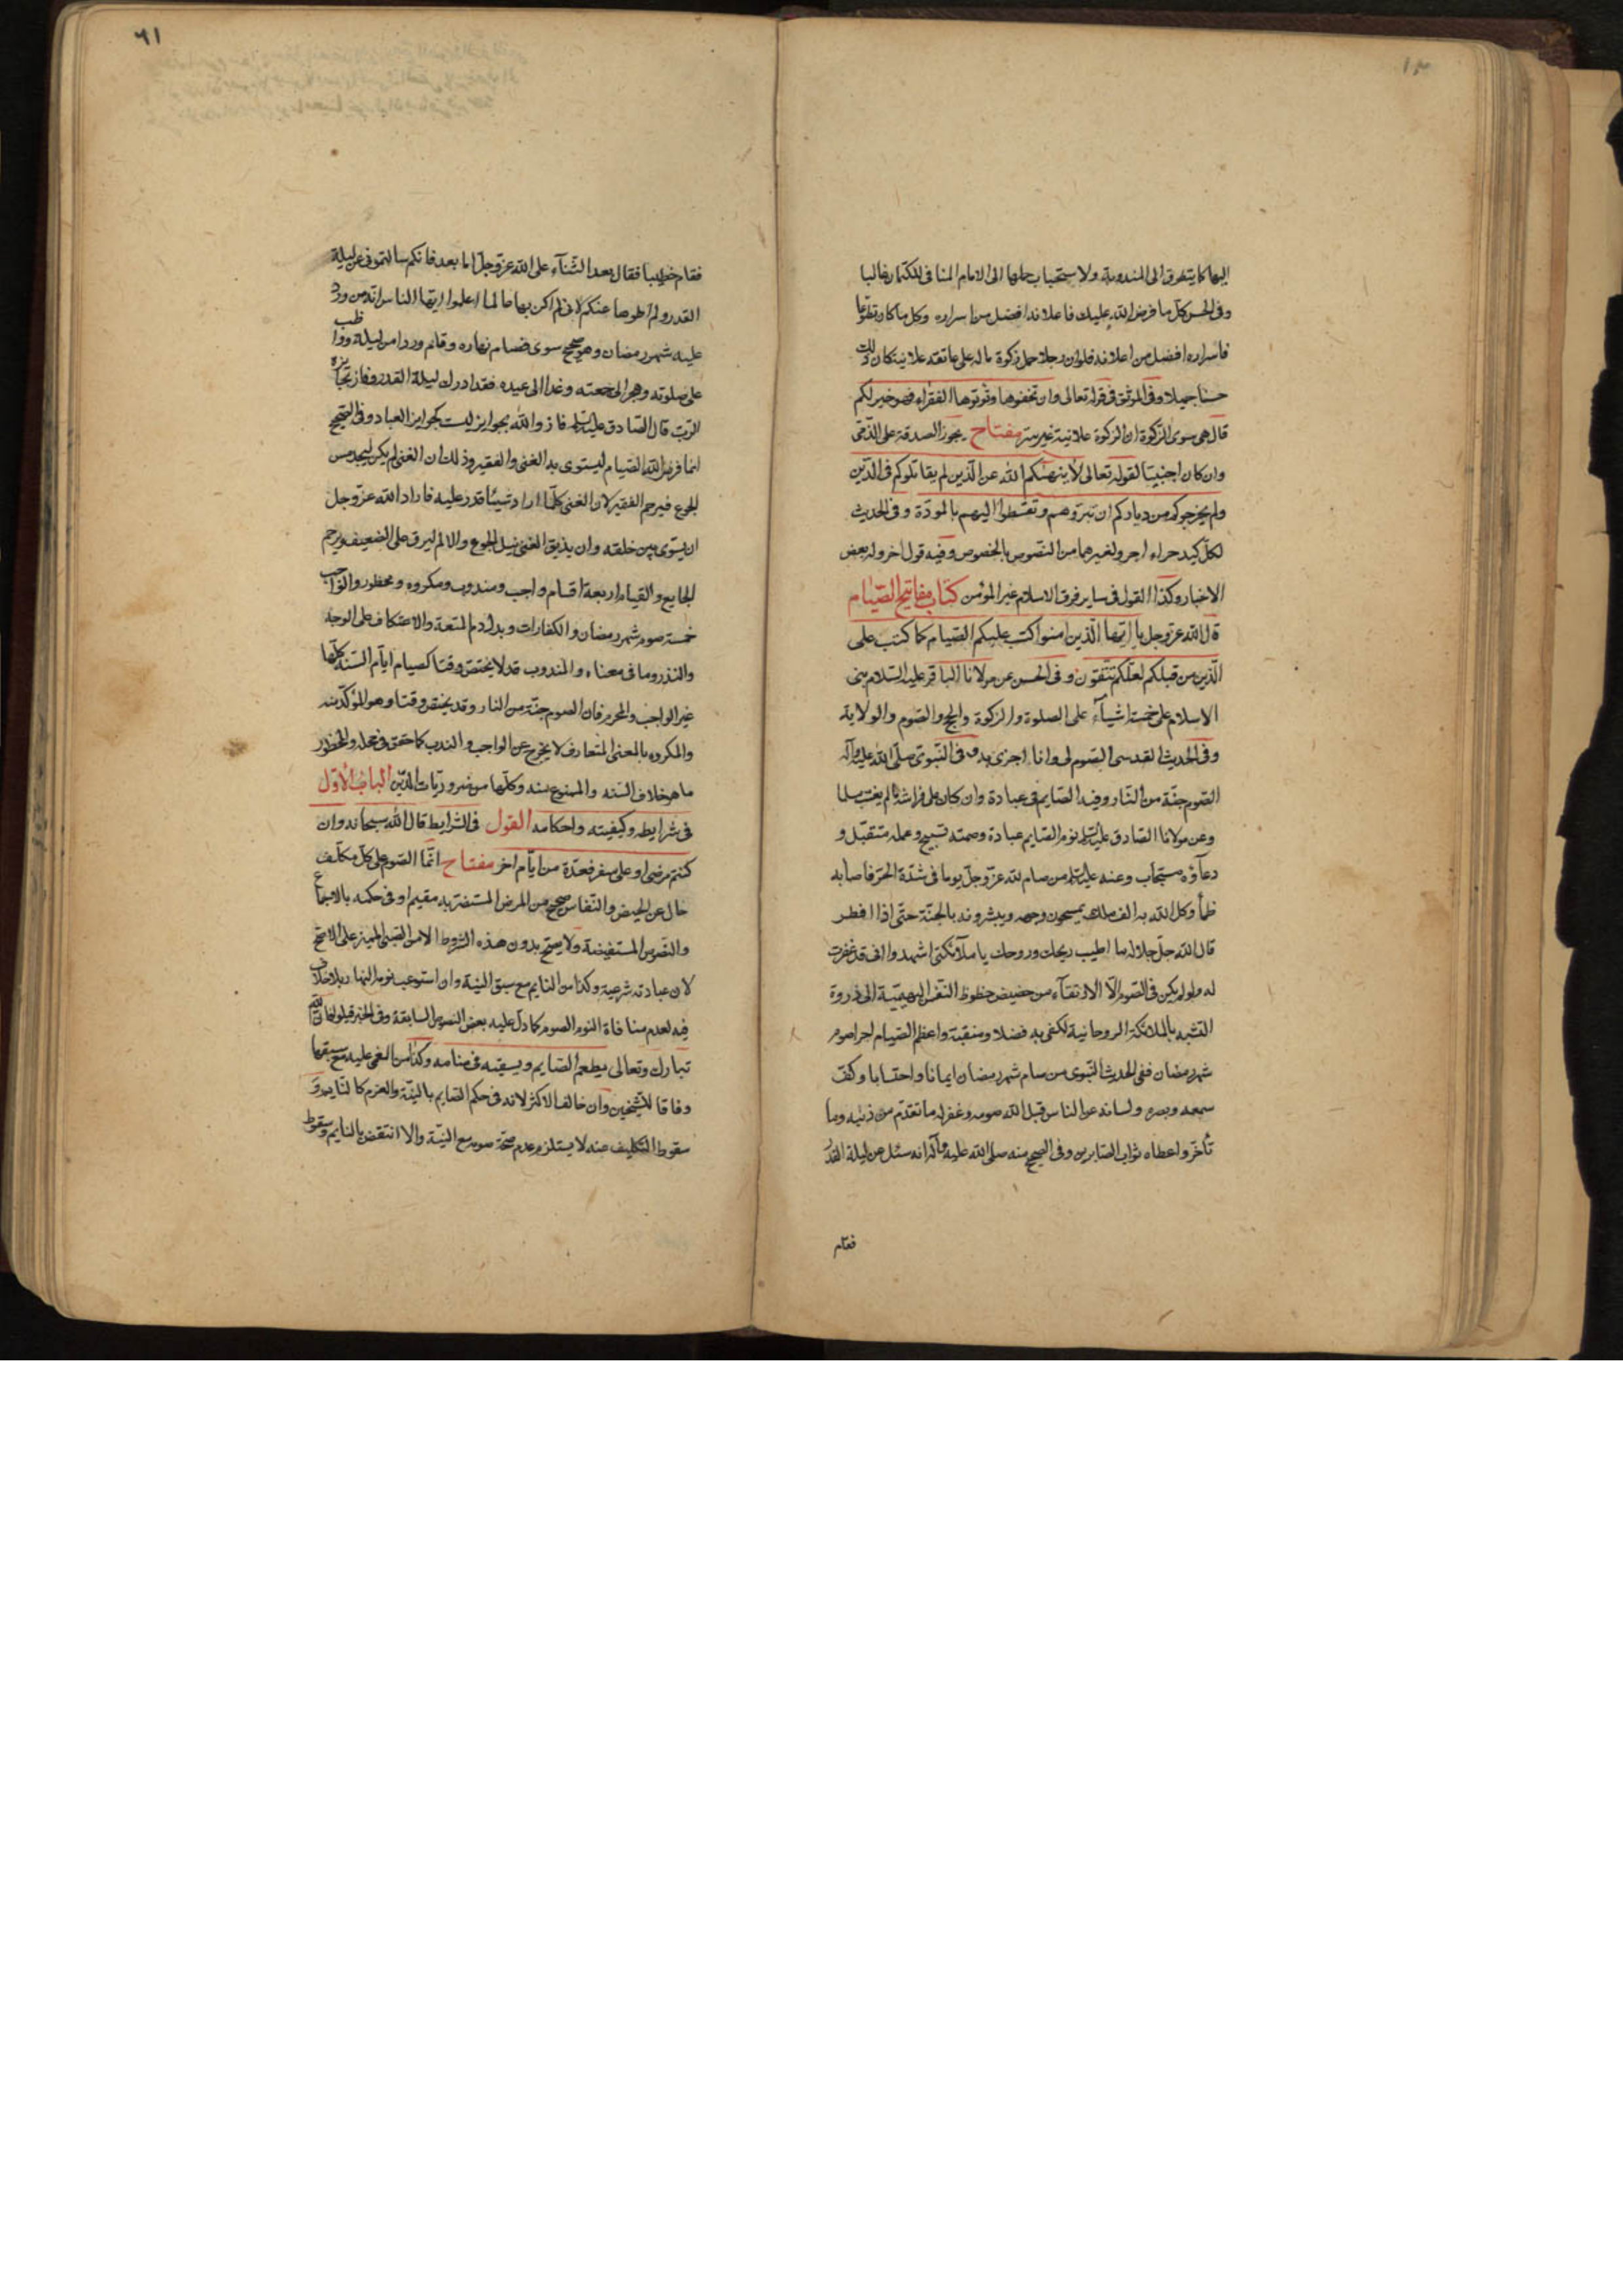 اليها كما يتطرق الى المندوبة ولاستحباب حملها الى الامام المنافى للكتمان غالبا
وفى الحسن كل ما فرض الله عليك فاعلانه افضل من اسراره وكل ما كان تطوعا
فاسراره افضل من اعلانه فلو ان رجلا حمل زكوة ماله على عاتقه علانية كان ذلك
حسنا جميلا وفى الموثق فى قوله تعالى وان تخفوها وتؤتوها الفقراء فهو خير لكم
قال هى سوى الزكوة ان الزكوة علانية غير سر مفتاح يجوز الصدقة على الذمى
وان كان اجنبيا لقوله تعالى لا ينهيكم الله عن الذين لم يقاتلوكم فى الدين
ولم يخرجوكم من دياركم ان تبروهم وتقسطوا اليهم بالمودة وفى الحديث
لكل كبد حراء اجر ولغيرهما من النصوص بالخصوص وفيه قول اخر وله بعض
الاخبار وكذا القول فى ساير فرق الاسلام غير المؤمن كتاب مفاتيح الصيام
قال الله عز وجل يا ايها الذين امنوا كتب عليكم الصيام كما كتب على
الذين من قبلكم لعلكم تتقون وفى الحسن عن مولانا الباقر عليه السلام بنى
الاسلام على خمسة اشياء على الصلوة والزكوة والحج والصوم والولاية
وفى الحديث القدسى الصوم لى وانا اجزى به وفى النبوى صلى الله عليه وآله
الصوم جنة من النار وفيه الصايم فى عبادة وان كان على فراشه ما لم يغتب مسلما
وعن مولانا الصادق عليه السلم نوم الصايم عبادة وصمته تسبيح وعمله متقبل و
دعاؤه مستجاب وعنه عليه السلم من صام لله عز وجل يوما فى شدة الحر فاصابه
ظمأ وكل الله به الف ملك يمسحون وجهه ويبشرونه بالجنة حتى اذا افطر
قال الله جل جلاله ما اطيب ريحك وروحك يا ملآئكتى اشهدوا انى قد غفرت
له ولو لم يكن فى الصوم الا الارتقاء من حضيض حظوظ النفس البهيمية الى ذروة
التشبه بالملائكة الروحانية لكفى به فضلا ومنقبة واعظم الصيام اجرا صوم
شهر رمضان ففى الحديث النبوى من صام شهر رمضان ايمانا واحتسابا وكف
سمعه وبصره ولسانه عن الناس قبل الله صومه وغفر له ما تقدم من ذنبه وما
تأخر واعطاه ثواب الصابرين وفى الصحيح عنه صلى الله عليه وآله انه سئل عن ليلة القدر
فقام
٦١
فقام خطيبا فقال بعد الثناء على الله عز وجل اما بعد فانكم سالتمونى عن ليلة
القدر ولم اطوها عنكم لانى لم اكن بها عالما اعلموا ايها الناس انه من ورد
عليه شهر رمضان وهو صحيح سوى فصام نهاره وقام وردا من ليله وواظب
على صلوته وهجر الى جمعته وغدا الى عيده فقد ادرك ليلة القدر وفاز بجايزة
الرب قال الصادق عليه السلم فاز والله بجوايز ليست كجوايز العباد وفى الصحيح
انما فرض الله الصيام ليستوى به الغنى والفقير وذلك ان الغنى لم يكن ليجد مس
الجوع فيرحم الفقير لان الغنى كلما اراد شيئا قدر عليه فاراد الله عز وجل
ان يسوى بين خلقه وان يذيق الغنى نيل الجوع والالم ليرق على الضعيف ويرحم
الجايع والصيام اربعة اقسام واجب ومندوب ومكروه ومحظور والواجب
خمسة صوم شهر رمضان والكفارات وبدل دم المتعة والاعتكاف على الوجه
والنذر وما فى معناه والمندوب قد لا يختص وقتا كصيام ايام السنة كلها
غير الواجب والمحرم فان الصوم جنة من النار وقد يختص وقتا وهو المؤكد منه
والمكروه بالمعنى المتعارف لا يخرج عن الواجب والندب كما حقق فى محله والمحظور
ما هو خلاف السنه والممنوع منه وكلها من ضروريات الدين الباب الأول
فى شرايطه وكيفيته واحكامه القول فى الشرايط قال الله سبحانه وان
كنتم مرضى او على سفر فعدة من ايام اخر مفتاح انما الصوم على كل مكلف
خال عن الحيض والنفاس صحيح من المرض المستضر به مقيم او فى حكمه بالاجماع
والنصوص المستفيضة ولا يصح بدون هذه الشروط الا من الصبى المميز على الاصح
لان عبادته شرعية وكذا من النايم مع سبق النية وان استوعب نومه النهار بلا خلاف
فيه لعدم منافاة النوم الصوم كما دل عليه بعض النصوص السابقة وفى الخبر قيلوا فان الله
تبارك وتعالى يطعم الصايم ويسقيه فى منامه وكذا من المغمى عليه مع سبقها
وفاقا للشيخين وان خالف الاكثر لانه فى حكم الصايم بالنية والعزم كالنايم و
سقوط التكليف عنه لا يستلزم عدم صحة صومه مع النية والا انتقض بالنايم وسقوط